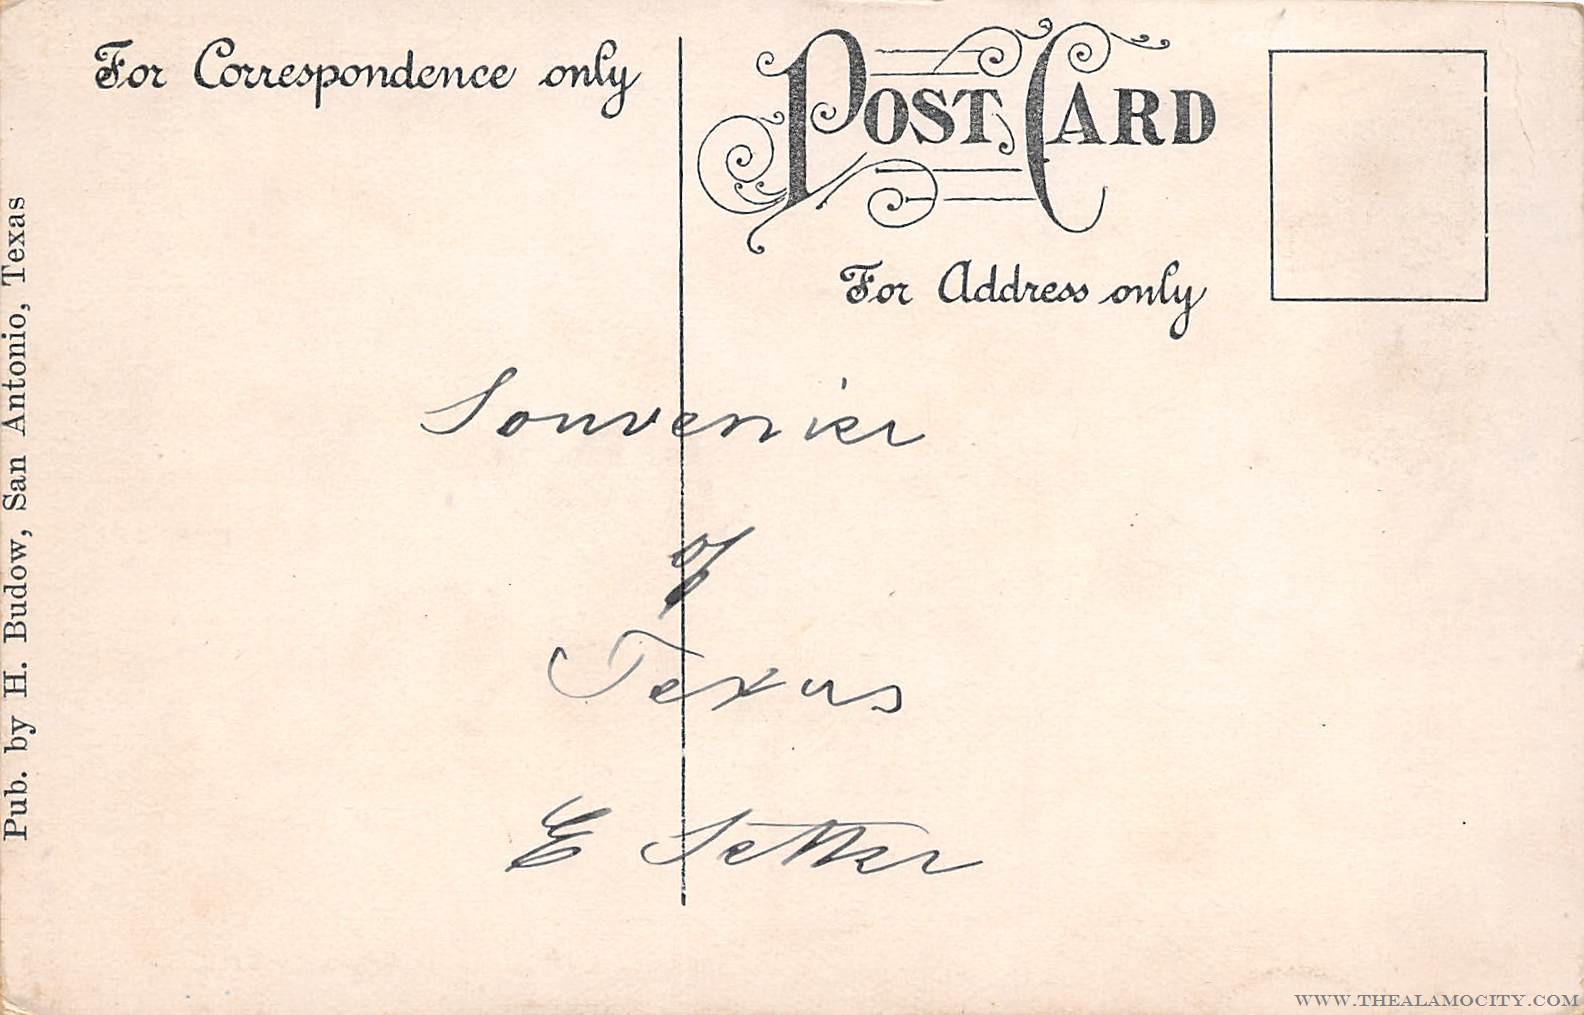 For Correspondence only
POST CARD
For Address only
Pub. by H. Budow, San Antonio, Texas
Souvenier
of
Texas
E Setter
WWW.THEALAMOCITY.COM